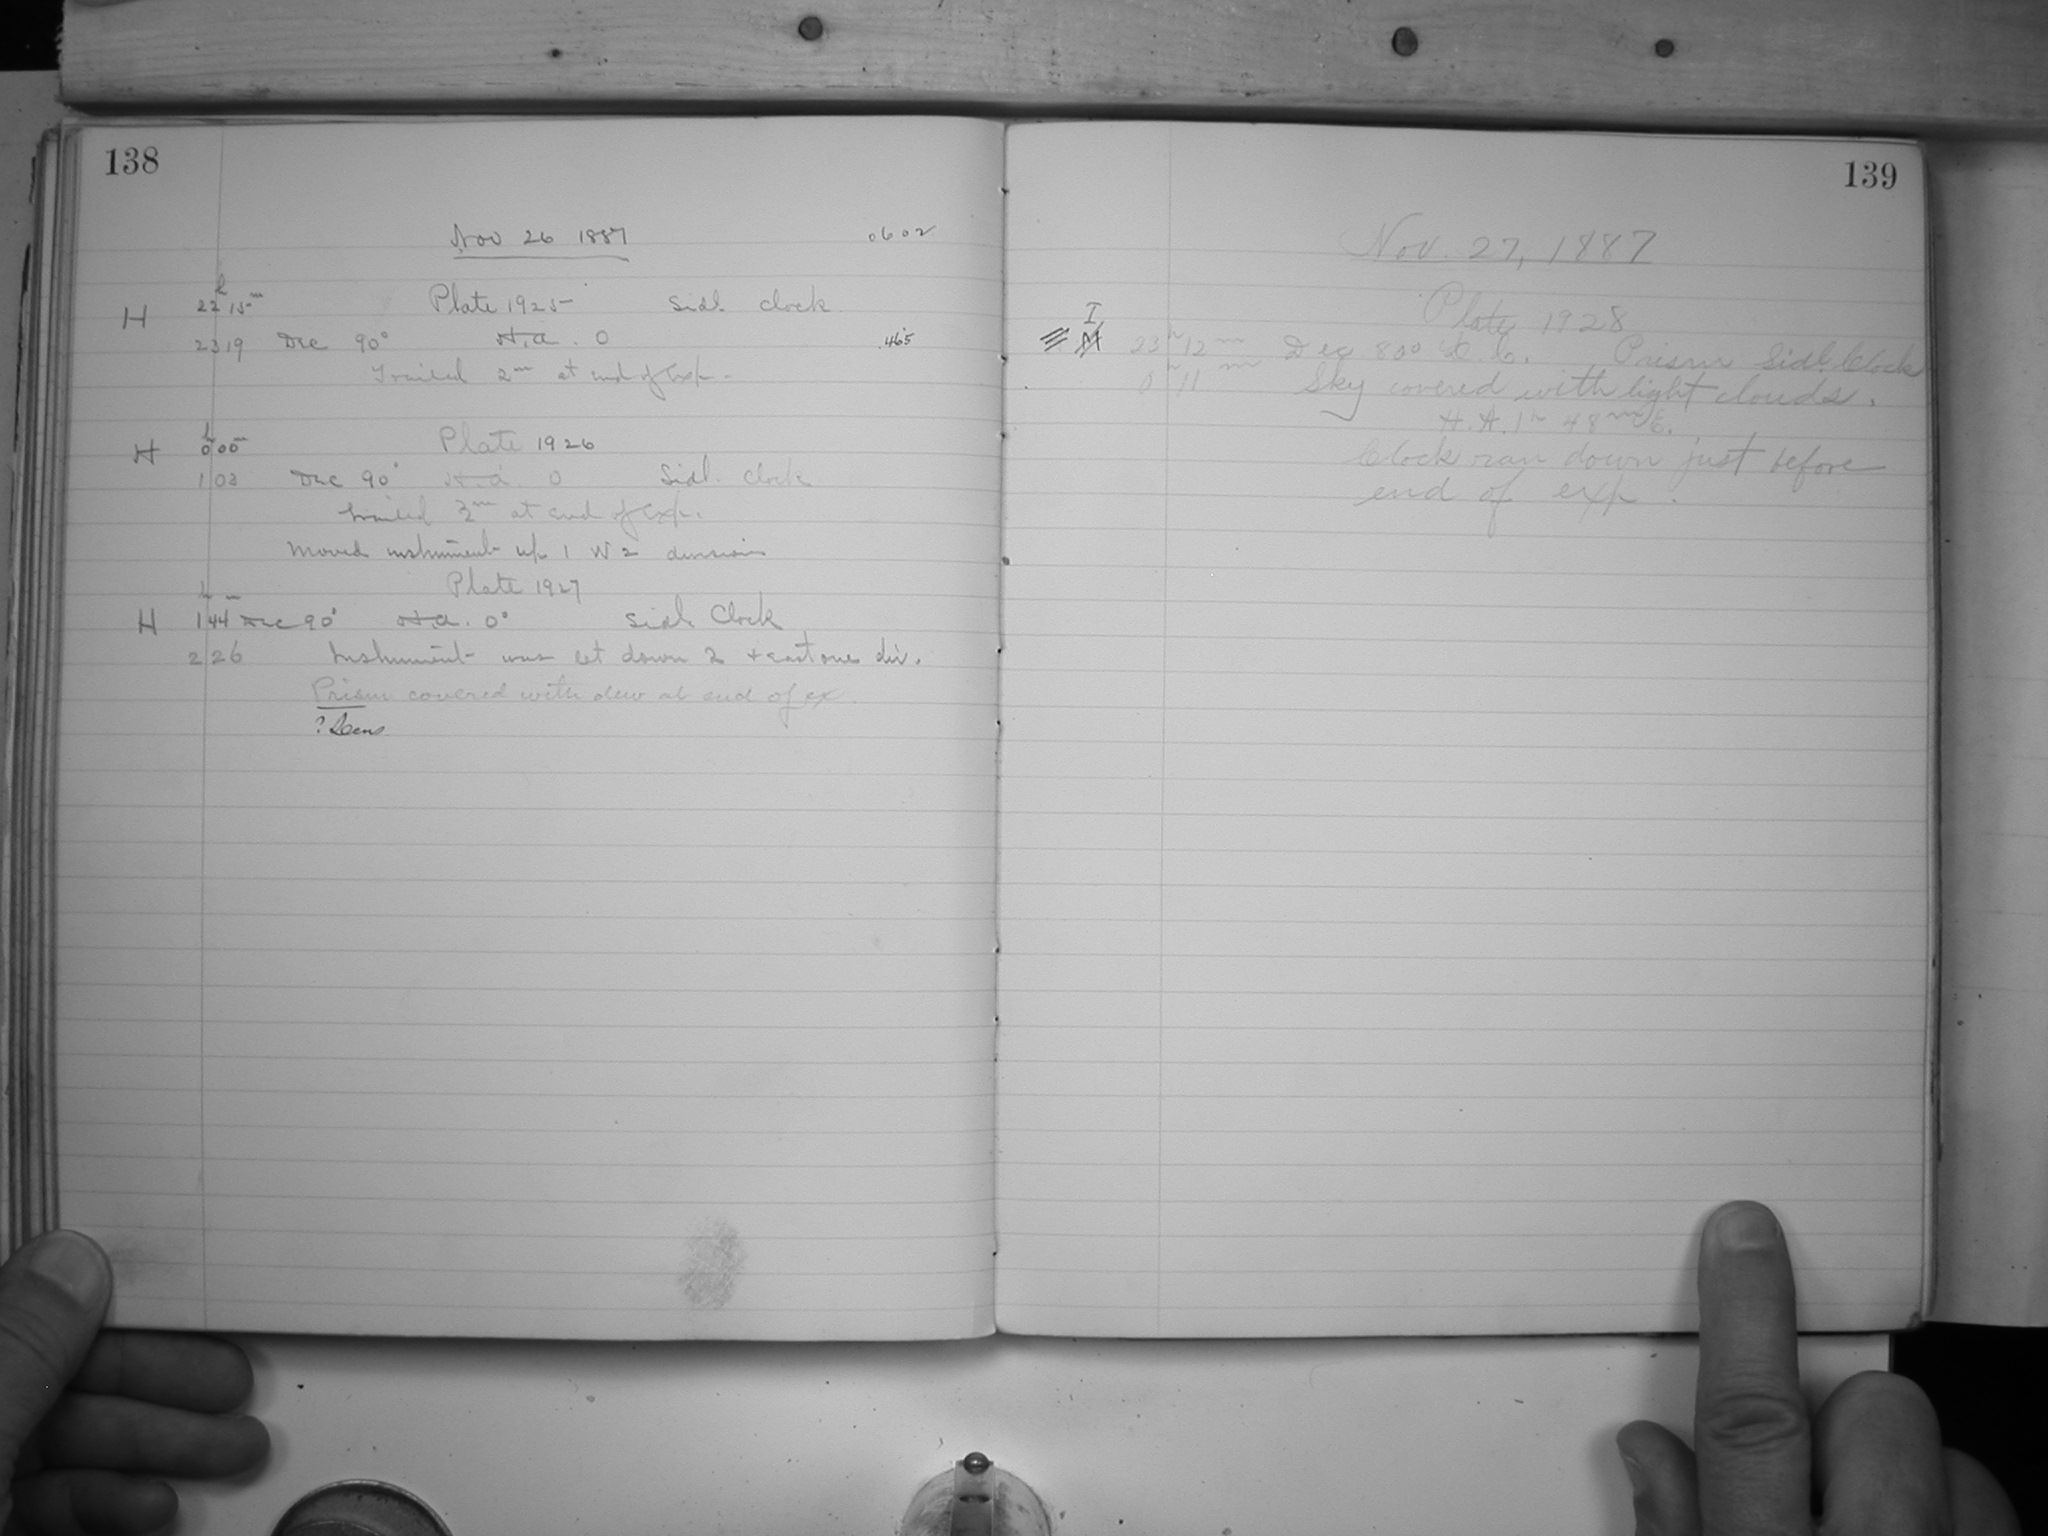 138
Nov 26 1887 .0602
H 22h 15m Plate 1925 Sidl. clock
23 19 Dec 90° H.a. 0 .465
Trailed 2m at end of Exp.
H 0h 00m Plate 1926
1 03 Dec 90° H.a. 0 Sidl. clock
trailed 3m at end of exp.
Moved instrument up 1 W 2 divisions
Plate 1927
H 1h 44m Dec 90° H.a. 0° Sidl. Clock
2 26 Instrument was set down 2 + east one div.
Prism covered with dew at end of ex.
? Lens
139
Nov. 27, 1887
Plate 1928
I
23h 12m Dec 80° L.C. Prism Sidl. Clock
0h 11m Sky covered with light clouds.
H.A. 1h 48m E.
Clock ran down just before
end of exp.